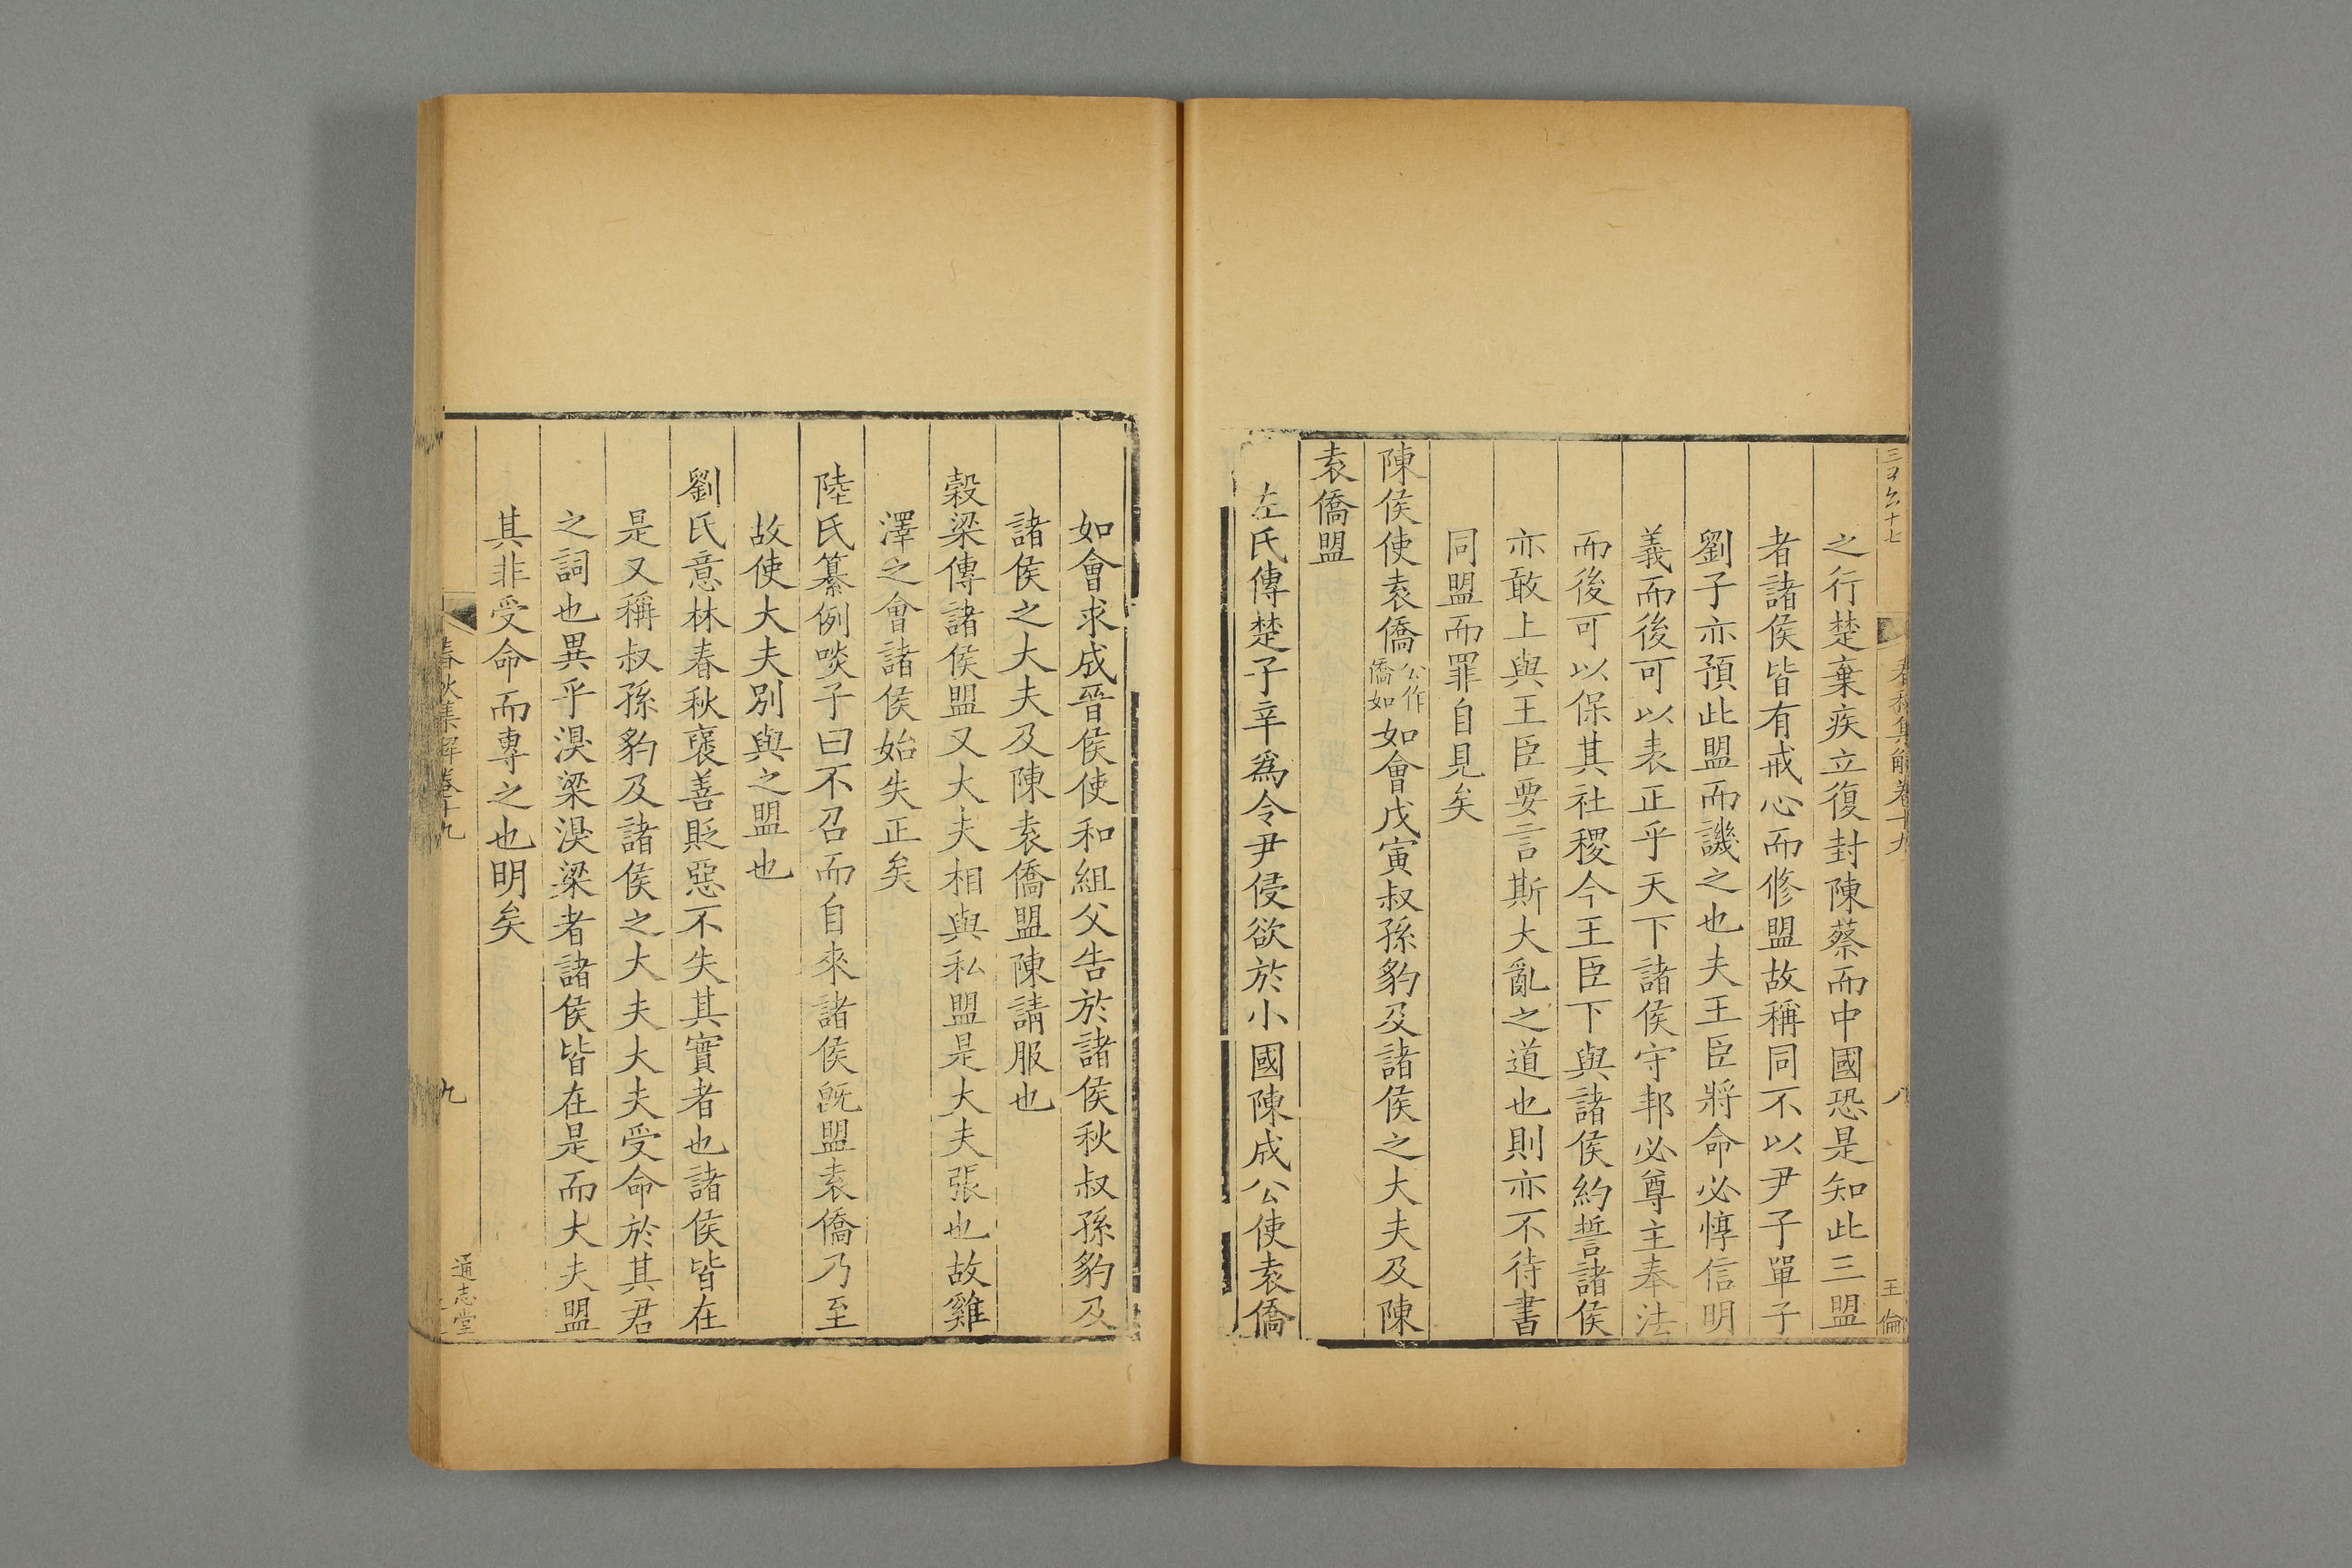 春秋集解卷十九
八
王倫
之行楚棄疾立復封陳蔡而中國恐是知此三盟
者諸侯皆有戒心而修盟故稱同不以尹子單子
劉子亦預此盟而譏之也夫王臣將命必惇信明
義而後可以表正乎天下諸侯守邦必尊主奉法
而後可以保其社稷今王臣下與諸侯約誓諸侯
亦敢上與王臣要言斯大亂之道也則亦不待書
同盟而罪自見矣
陳侯使袁僑公作僑如如會戊寅叔孫豹及諸侯之大夫及陳
袁僑盟
左氏傳楚子辛爲令尹侵欲於小國陳成公使袁僑
如會求成晉侯使和組父告於諸侯秋叔孫豹及
諸侯之大夫及陳袁僑盟陳請服也
穀梁傳諸侯盟又大夫相與私盟是大夫張也故雞
澤之會諸侯始失正矣
陸氏纂例啖子曰不召而自來諸侯旣盟袁僑乃至
故使大夫別與之盟也
劉氏意林春秋襃善貶惡不失其實者也諸侯皆在
是又稱叔孫豹及諸侯之大夫大夫受命於其君
之詞也異乎湨梁湨梁者諸侯皆在是而大夫盟
其非受命而專之也明矣
春秋集解卷十九
九
通志堂